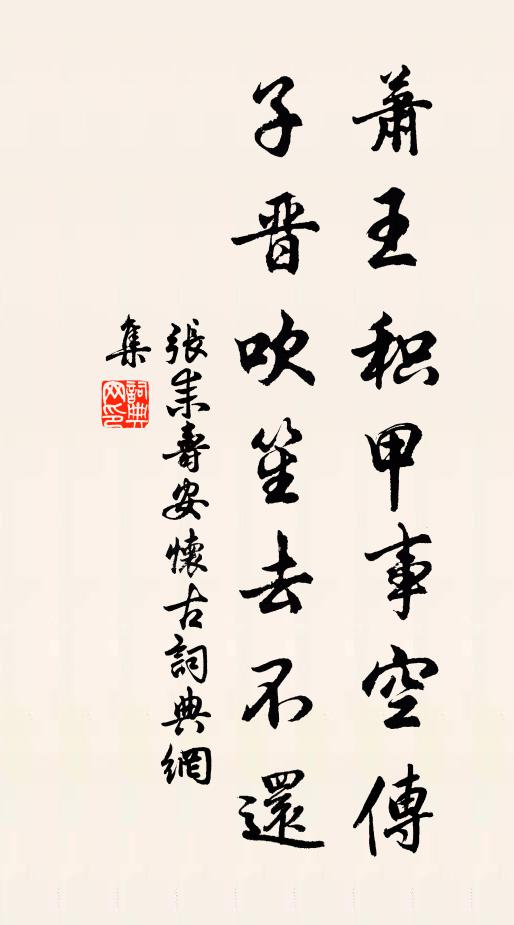 蕭王积甲事空傳
子晋吹笙去不還
張耒壽安懷古詞典網
集
詞典
网印